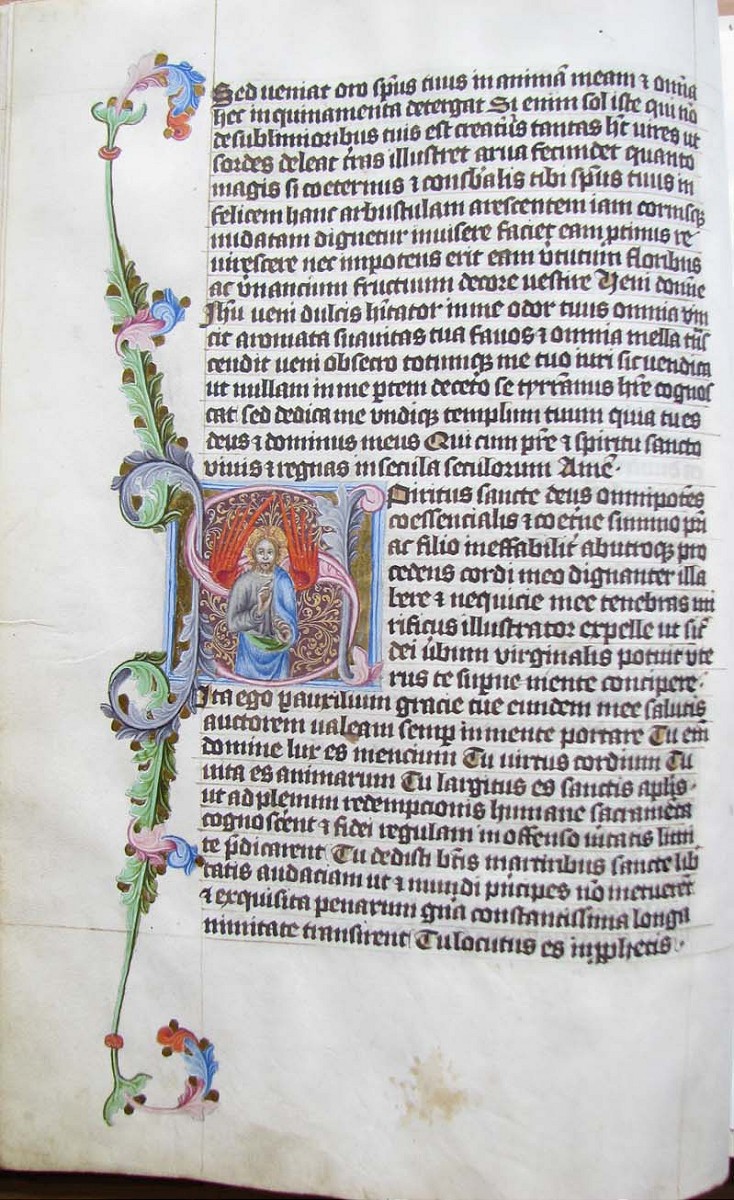 Sed ueniat oro sps tuus in animā meam ⁊ om̄ia
hec inquinamenta detergat Si enim sol iste qui nō
de sublimioribus tuis est creatus tantas ht uires ut
sordes deleat tras illustret arua fecundet quanto
magis si coeternus ⁊ consb̄alis tibi sps tuus in
felicem hanc arbustulam arescentem iam cornisq;
nudatam dignetur inuisere faciet eam ptinus re
uirescere nec impotens erit eam v̓tutum floribus
ac v̓nantium fructuum decore uestire Veni domīe
Jhu ueni dulcis hītator in me odor tuus omnia vin
cit aromata suauitas tua fauos ⁊ omnia mella
cendit ueni obsecro totumq; me tuo iuri sic uendica
ut nullam in me ptem deceto se tyrānnus hr̄e cognos
cat sed dedica me vndiq; templum tuum quia tu es
deus ⁊ dominus meus Qui cum pr̄e ⁊ spiritu sancto
viuis ⁊ regnas in secula seculorum Amē·
Spiritus sancte deus omnipotēs
coessencialis ⁊ coet̓ne summo pr̄i
ac filio ineffabilit̓ abutroq; pro
cedens cordi meo dignanter illa
bere ⁊ nequicie mee tenebras mi
rificus illustrator expelle ut sic̄
dei v̓bum virginalis potuit vte
rus te supne mente concipere·
Ita ego p auxilium gracie tue eiusdem mee salutis
auctorem ualeam semp in mente portare Tu em̄
domine lux es mencium Tu uirtus cordium Tu
uita es animarum Tu largitus es sanctis apl̄is·
ut ad plenum redempcionis humane sacramēta
cognoscent ⁊ fidei regulam in offenso u̓itatis limi
te p̄dicarent Tu dedisti bt̄is martiribus sancte lib̓
tatis audaciam ut ⁊ mundi p̓ncipes nō metuerēt
⁊ exquisita penarum gn̄a constantissima longa
nimitate transirent Tu locutus es in pphetis·